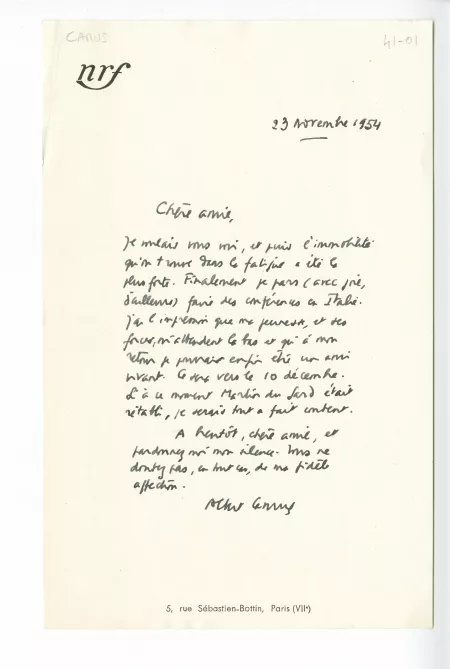 CAMUS
41-01
nrf
23 Novembre 1954
Chère amie,
Je voulais vous voir, et puis l'immobilité
qu'on trouve dans la fatigue a été la
plus forte. Finalement je pars (avec joie,
d'ailleurs) faire des conférences en Italie.
J'ai l'impression que ma jeunesse, et ses
forces, m'attendent là-bas et qu'à mon
retour je pourrais enfin être un ami
vivant. Ce sera vers le 10 décembre.
Si à ce moment Martin du Gard était
rétabli, je serais tout à fait content.
A bientôt, chère amie, et
pardonnez-moi mon silence. Vous ne
doutez pas, en tout cas, de ma fidèle
affection.
Albert Camus
5, rue Sébastien-Bottin, Paris (VIIe)